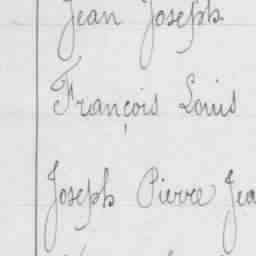 Jean Joseph
François Louis
Joseph Pierre Jea